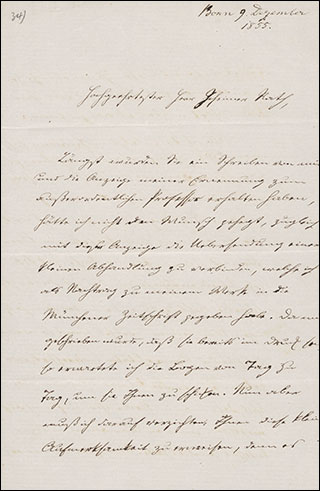 34)
Bonn 9 Dezember
1855.
Hochgeehrtester Herr Geheimer Rath,
Längst würden Sie ein Schreiben von mir
und die Anzeige meiner Ernennung zum
außerordentlichen Professor erhalten haben,
hätte ich nicht den Wunsch gehegt, zugleich
mit dieser Anzeige die Uebersendung einer
kleinen Abhandlung zu verbinden, welche ich
als Nachtrag zu meinem Werk in die
Münchener Zeitschrift gegeben habe. Da mir
geschrieben wurde, daß sie bereits im Druck sei
so erwartete ich die Bogen von Tag zu
Tag, um sie Ihnen zu schicken. Nun aber
muß ich darauf verzichten Ihnen diese kleine
Aufmerksamkeit zu erweisen, denn es